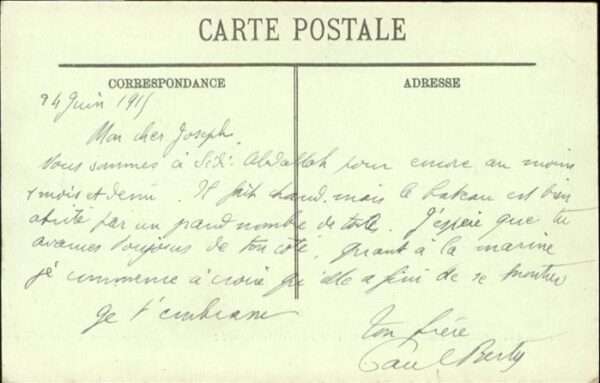 CARTE POSTALE
CORRESPONDANCE
ADRESSE
24 Juin 1915
Mon cher Joseph,
Nous sommes à Sidi-Abdallah pour encore au moins
1 mois et demi. Il fait chaud, mais le bateau est bien
abrité par un grand nombre de toile. J'espère que tu
avances toujours de ton côté. Quant à la marine
je commence à croire qu'elle a fini de se montrer
Je t'embrasse
Ton frère
Paul